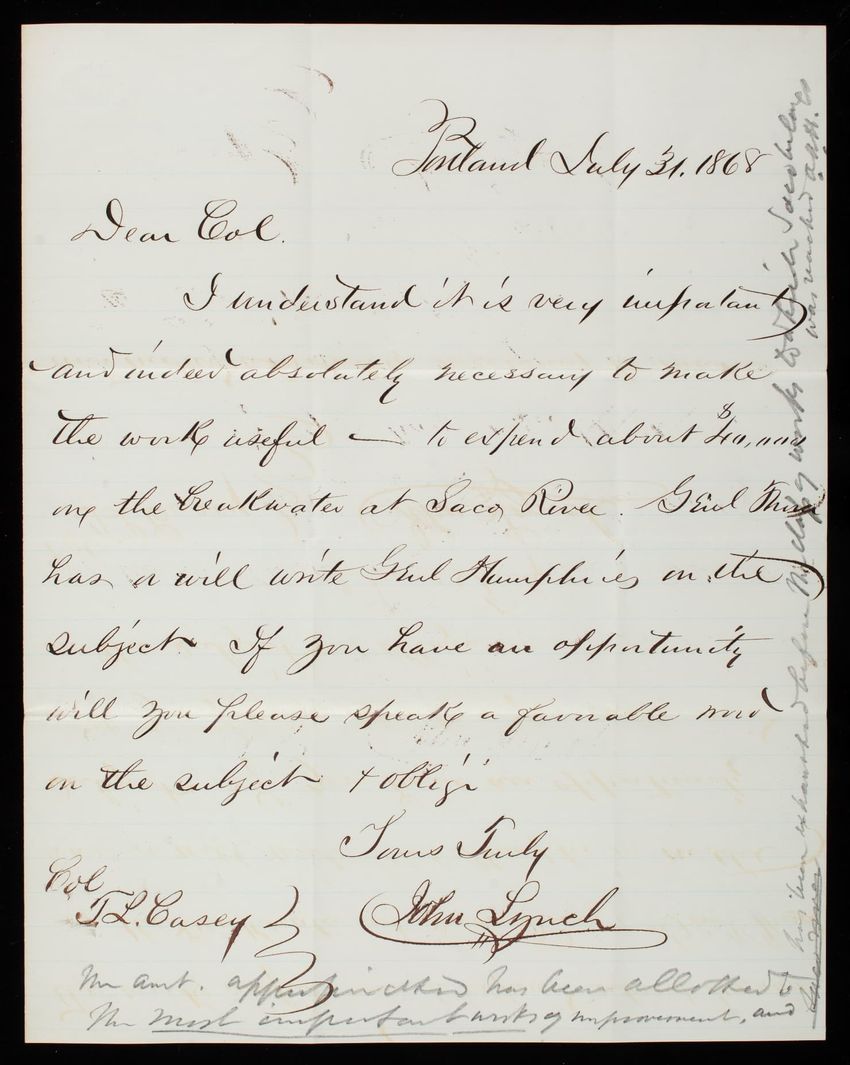 Portland July 31. 1868
Dear Col.
I understand it is very important
and indeed absolutely necessary to make
the work useful — to expend about $40,000
on the breakwater at Saco River. Genl Thom
has or will write Genl Humphries on the
subject. If you have an opportunity
will you please speak a favorable word
on the subject & oblige
Yours Truly
John Lynch
Col
T L. Casey
The amt. appropriated has been allotted to
the most important works of improvement, and
has been exhausted before the class of works to which Saco belongs
was reached